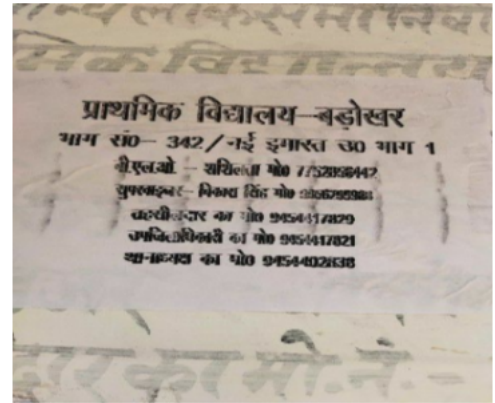 न्य लोकसभा निर्वा
प्राथमिक विद्यालय-बड़ोखर
भाग सं0- 342/नई इमारत उ0 भाग 1
बी.एल.ओ. - शशिलता मो0 7752856442
सुपरवाइजर- विकास सिंह मो0
तहसीलदार का मो0 9454417829
उपजिलाधिकारी का मो0 9454417821
थानाध्यक्ष का मो0 9454402638
दार का मो.नं.-